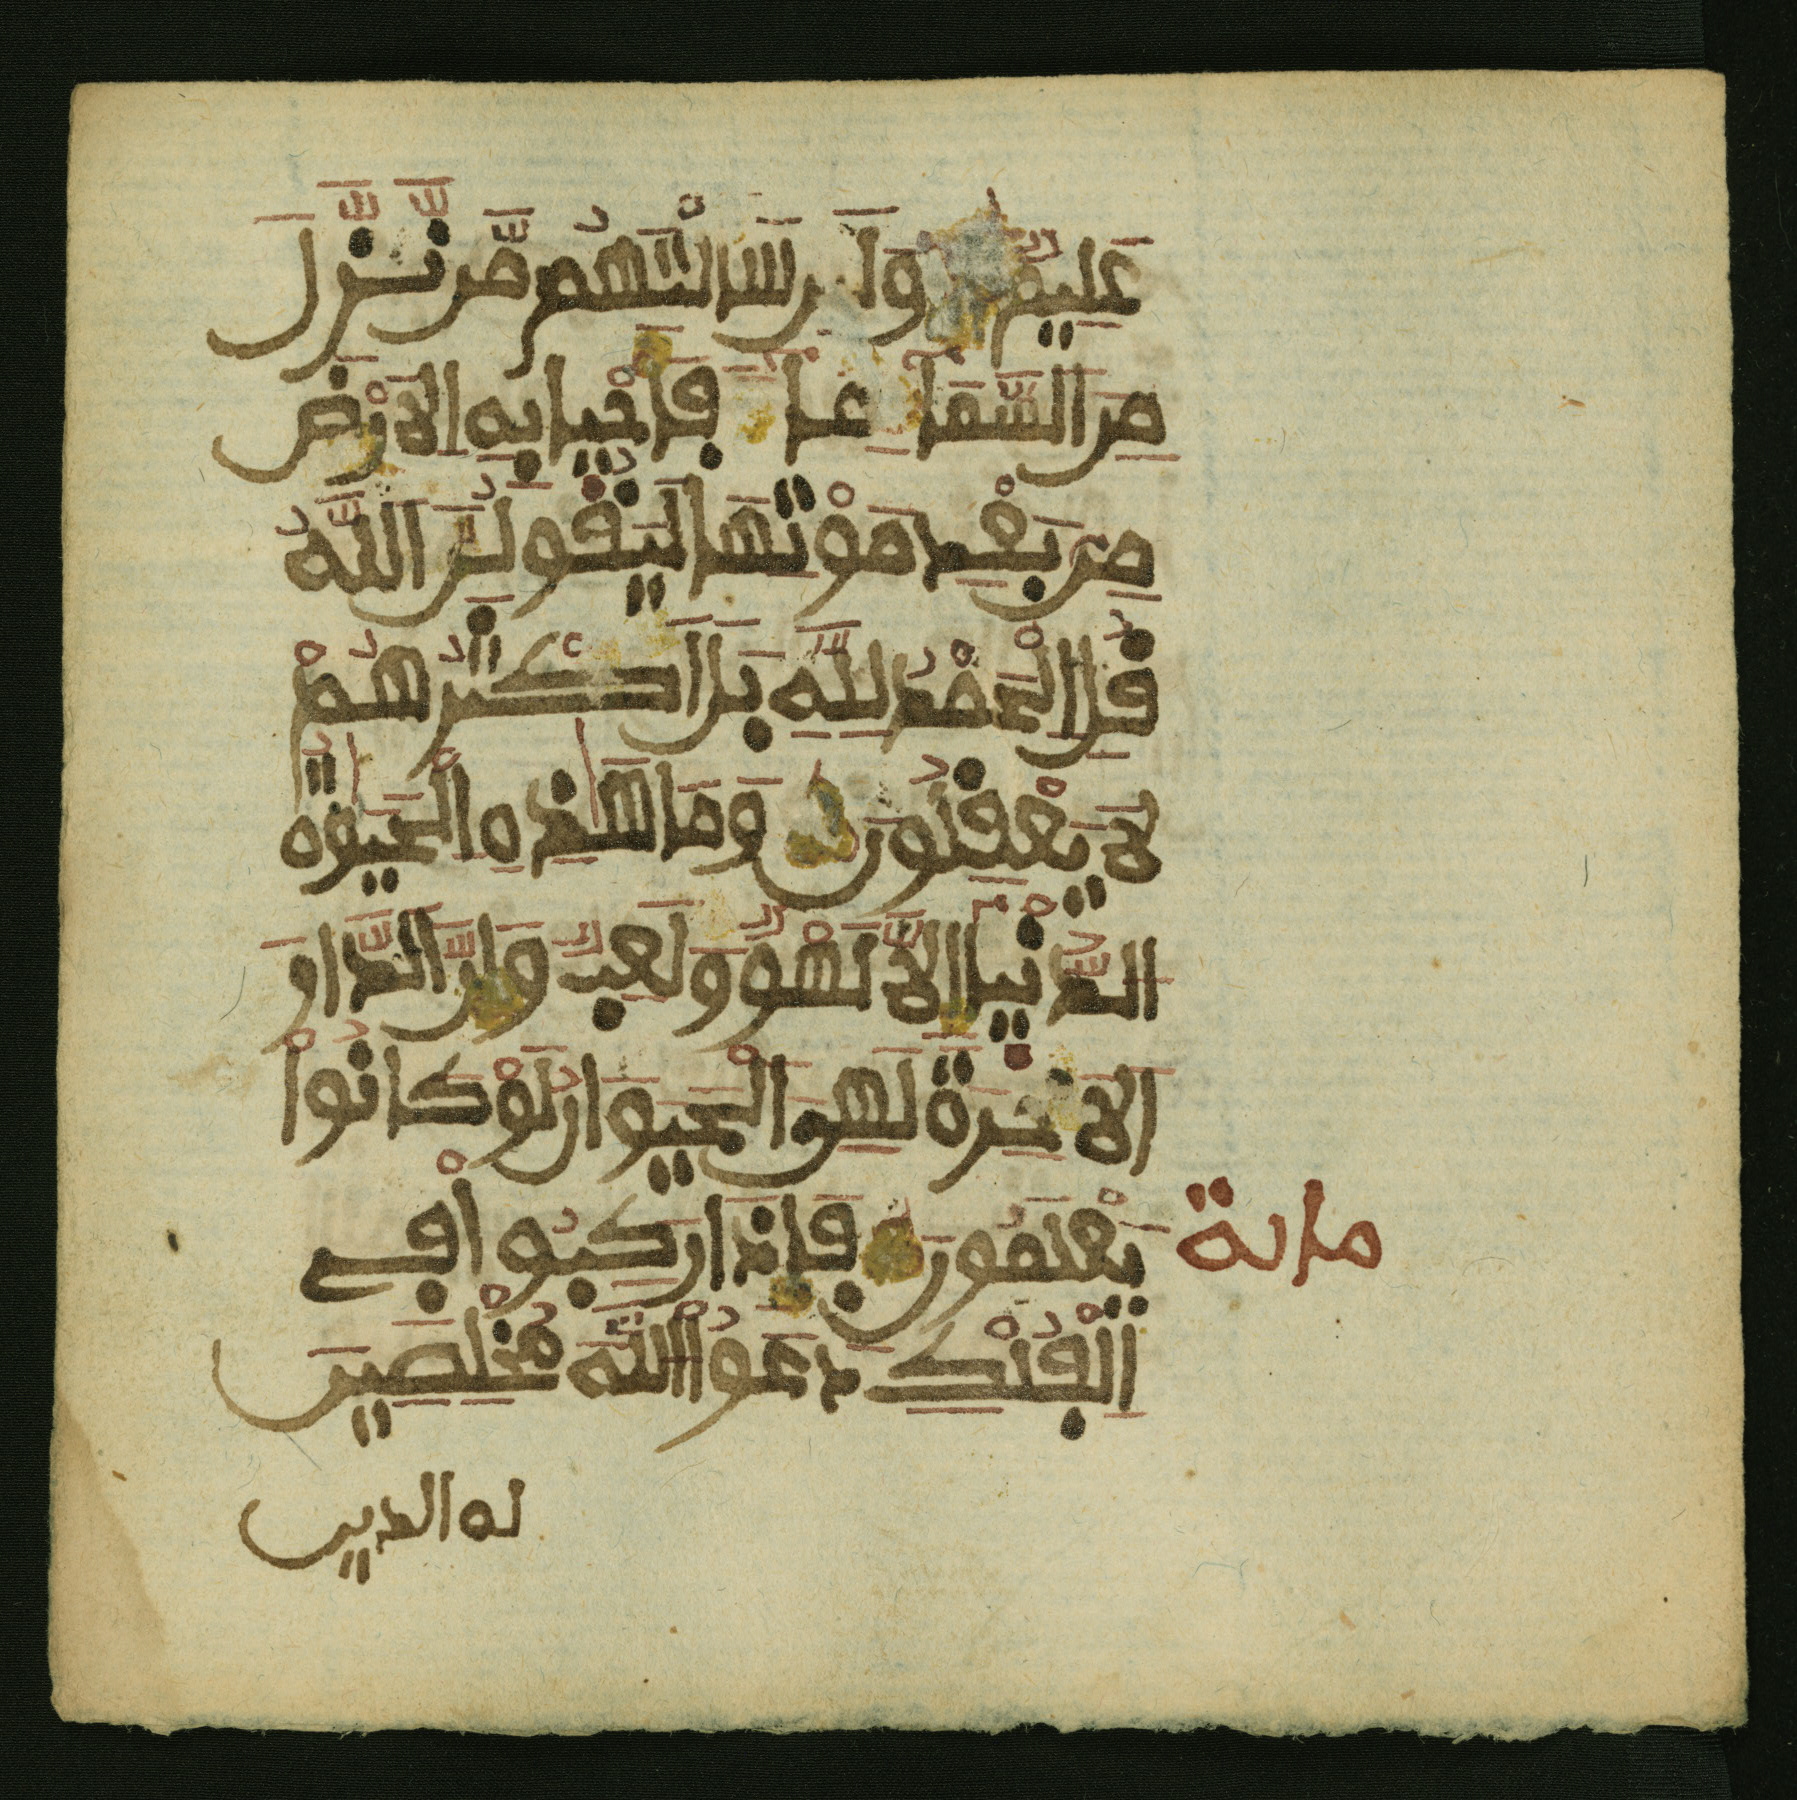 عَلِيمٌ وَلَئِن سَأَلْتَهُم مَّن نَّزَّلَ
مِنَ السَّمَاءِ مَاءً فَأَحْيَا بِهِ الْأَرْضَ
مِن بَعْدِ مَوْتِهَا لَيَقُولَنَّ اللَّهُ
قُلِ الْحَمْدُ لِلَّهِ بَلْ أَكْثَرُهُمْ
لَا يَعْقِلُونَ وَمَا هَٰذِهِ الْحَيَوٰةُ
الدُّنْيَا إِلَّا لَهْوٌ وَلَعِبٌ وَإِنَّ الدَّارَ
الْآخِرَةَ لَهِيَ الْحَيَوَانُ لَوْ كَانُوا
مائة
يَعْلَمُونَ فَإِذَا رَكِبُوا فِي
الْفُلْكِ دَعَوُا اللَّهَ مُخْلِصِينَ
له الدين